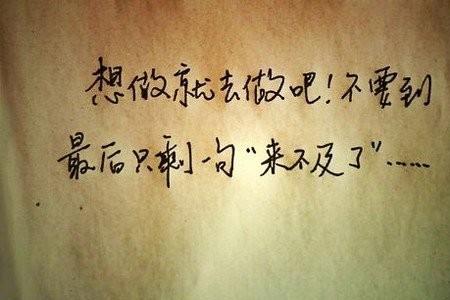 想做就去做吧!不要到
最后只剩一句“来不及了”……